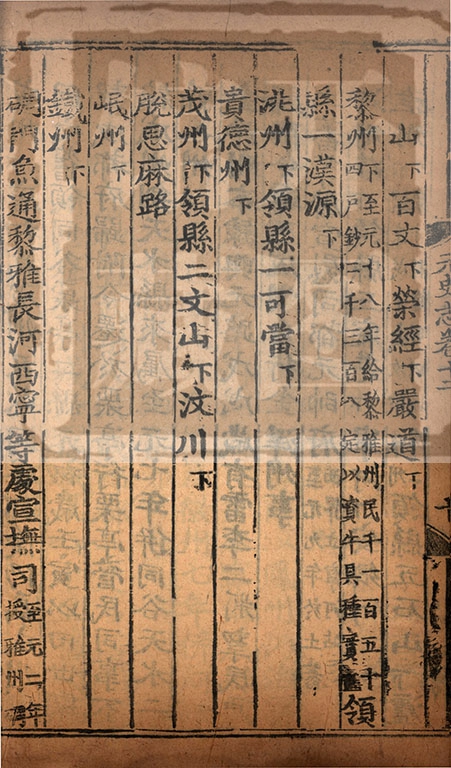 山下百丈下榮經下嚴道下
黎州下至元十八年給黎雅州民千一百五十四戶鈔二千三百八定以資牛具種實領
縣一漢源下
洮州下領縣一可當下
貴德州下
茂州下領縣二文山下汶川下
脫思麻路
岷州下
鐵州下
碉門魚通黎雅長河西寧等處宣撫司至元二年授雅州碉
元史志卷十二